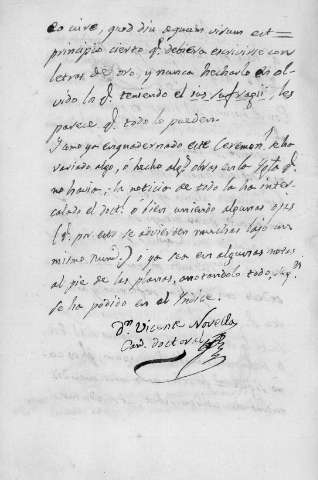 eo iure, quod diu æquum visum est =
principio cierto q.e debiera escrivirse con
letras de oro, y nunca hecharlo en ol-
vido lo q.e teniendo el ius sufragii, les
parece q.e todo lo pueden.
Y como ya enquadernado este Ceremon.l se ha
variado algo, ó hecho alg.s obras en la Ygl.a q.e
no havia; la noticia de todo la ha inter-
calado el doct.l ó bien uniendo algunas ojas
(q.e por esto se advierten muchas bajo un
mismo num.o) ó ya sea en algunas notas
al pie de las planas, anotandolo todo, seg.n
se ha podido en el Yndice.
D.n Vicente Novella
Can. doctoral